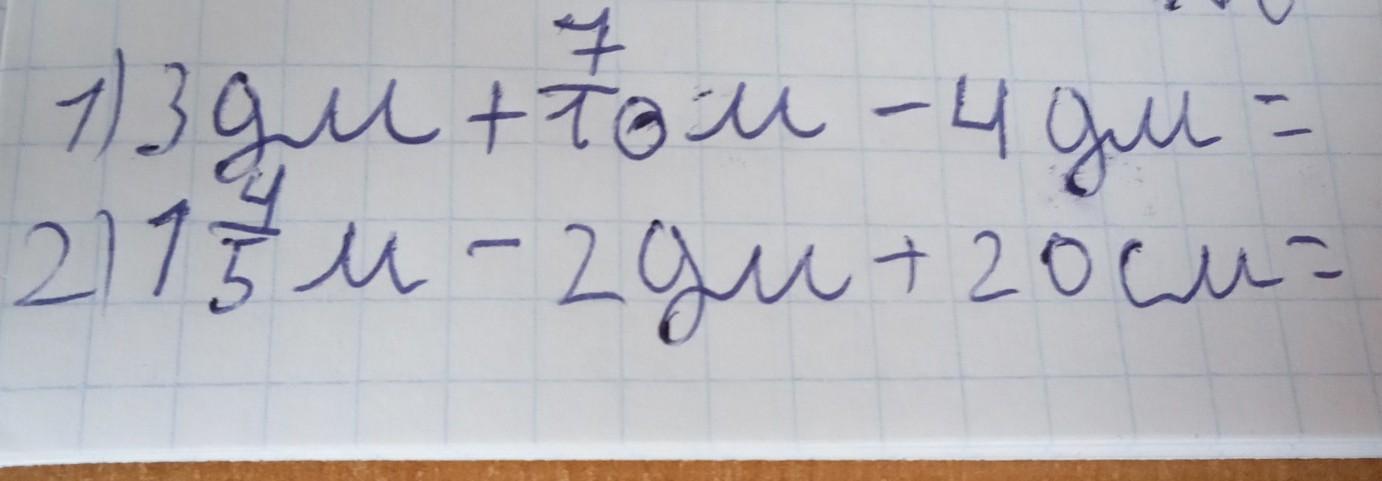 1) 3 дм + 7/10 м - 4 дм =
2) 1 4/5 м - 2 дм + 20 см =